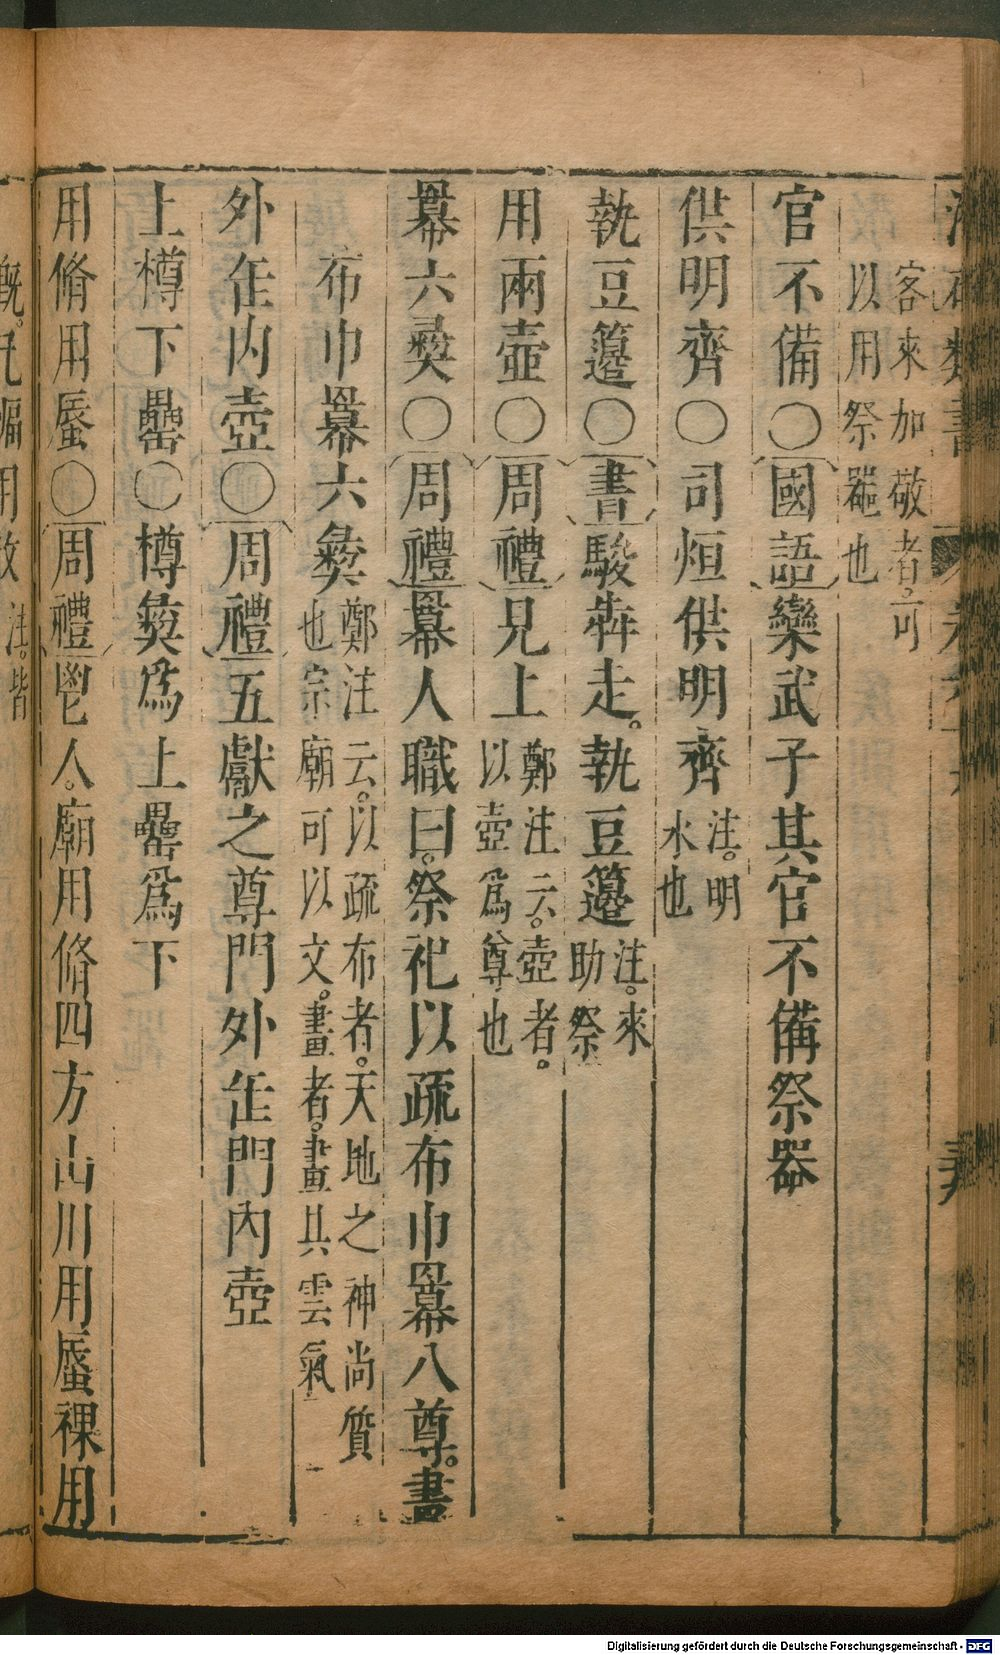 客來加敬者可
以用祭器也
官不備○國語欒武子其官不備祭器
供明齊○司烜供明齊注。明
水也
執豆籩○書駿犇走。執豆籩注。來
助祭
用兩壺○周禮見上鄭注云。壺者。
以壺爲尊也
冪六彝○周禮冪人職曰。祭祀以疏布巾冪八尊。畫
布巾冪六彝鄭注云。以疏布者。天地之神尚質
也宗廟可以文。畫者。畫其雲氣
外缶內壺○周禮五獻之尊門外缶門內壺
上樽下罍○樽彝爲上罍爲下
用脩用蜃○周禮鬯人。廟用脩四方山川用蜃祼用
Digitalisierung gefördert durch die Deutsche Forschungsgemeinschaft - DFG